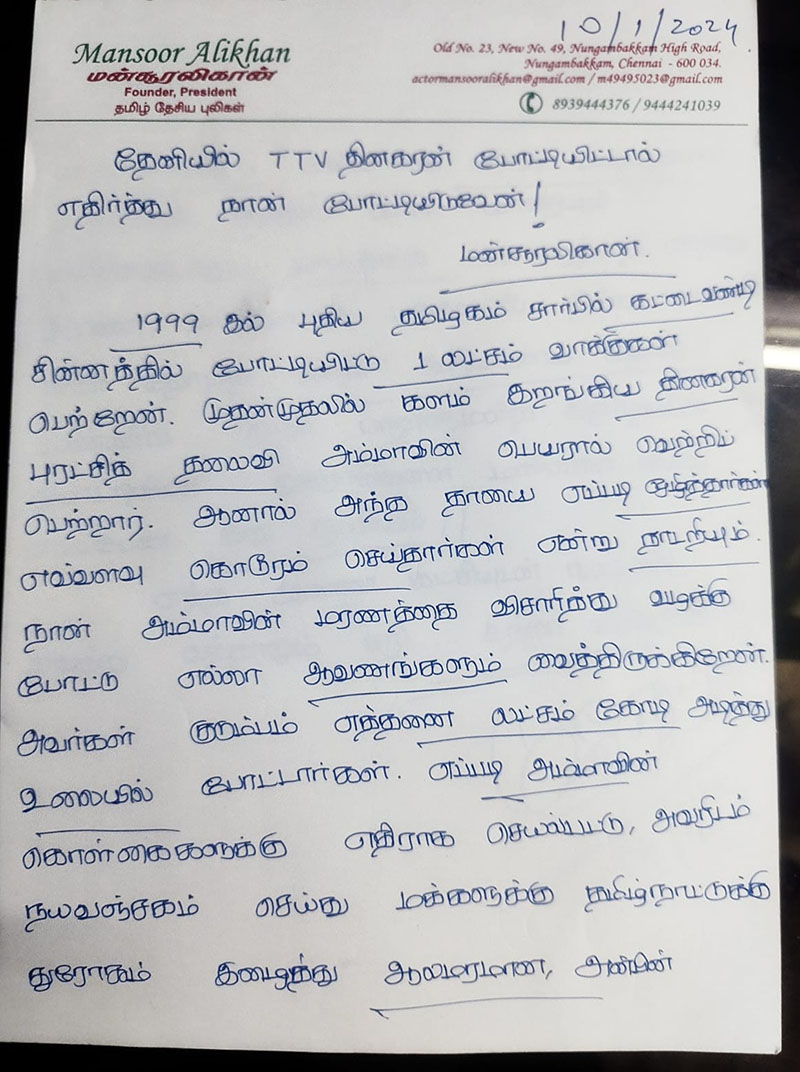 10/1/2024
Mansoor Alikhan
மன்சூரலிகான்
Founder, President
தமிழ் தேசிய புலிகள்
Old No. 23, New No. 49, Nungambakkam High Road,
Nungambakkam, Chennai - 600 034.
actormansooralikhan@gmail.com / m49495023@gmail.com
8939444376 / 9444241039
தேனியில் TTV தினகரன் போட்டியிட்டால்
எதிர்த்து நான் போட்டியிடுவேன்!
மன்சூரலிகான்.
1999 இல் புதிய தமிழகம் சார்பில் கட்டைவண்டி
சின்னத்தில் போட்டியிட்டு 1 லட்சம் வாக்குகள்
பெற்றேன். முதன்முதலில் களம் இறங்கிய தினகரன்
புரட்சித் தலைவி அம்மாவின் பெயரால் வெற்றிப்
பெற்றார். ஆனால் அந்த தாயை எப்படி அழித்தார்கள்
எவ்வளவு கொடூரம் செய்தார்கள் என்று நாடறியும்.
நான் அம்மாவின் மரணத்தை விசாரித்து வழக்கு
போட்டு எல்லா ஆவணங்களும் வைத்திருக்கிறேன்.
அவர்கள் குடும்பம் எத்தனை லட்சம் கோடி அடித்து
உலையில் போட்டார்கள். எப்படி அம்மாவின்
கொள்கைகளுக்கு எதிராக செயல்பட்டு, அவரிடம்
நயவஞ்சகம் செய்து மக்களுக்கு தமிழ்நாட்டுக்கு
துரோகம் இழைத்து ஆலமரமான, அன்பின்